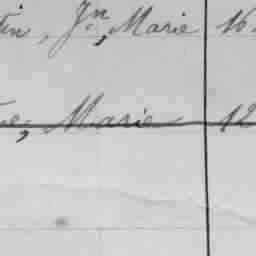 tin, Jn, Marie 16
e, Marie 12